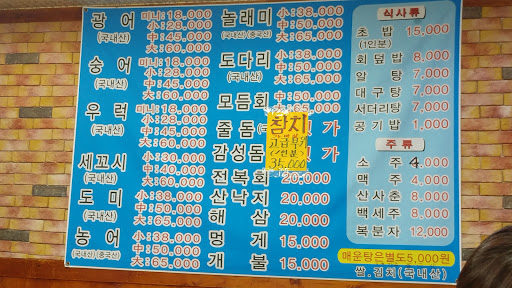 광어
(국내산)
미니:18,000
소:28,000
중:45,000
대:60,000
숭어
(국내산)
미니:18,000
소:28,000
중:45,000
대:60,000
우럭
(국내산)
미니:18,000
소:28,000
중:45,000
대:60,000
세꼬시
(국내산)
소:30,000
중:40,000
대:60,000
도미
(국내산)
소:38,000
중:50,000
대:65,000
농어
(국내산)(중국산)
소:38,000
중:50,000
대:65,000
놀래미
(국내산)(중국산)
소:38,000
중:50,000
대:60,000
도다리
(국내산)
소:38,000
중:50,000
대:65,000
모듬회
중:50,000
대:65,000
줄돔
가
감성돔
가
참치
고급부위
(1인분)
35,000
전복회 20,000
산낙지 20,000
해삼 20,000
멍게 15,000
개불 15,000
식사류
초밥 15,000
(1인분)
회덮밥 8,000
알탕 7,000
대구탕 7,000
서더리탕 7,000
공기밥 1,000
주류
소주 4,000
맥주 4,000
산사춘 8,000
백세주 8,000
복분자 12,000
매운탕은별도5,000원
쌀.김치(국내산)